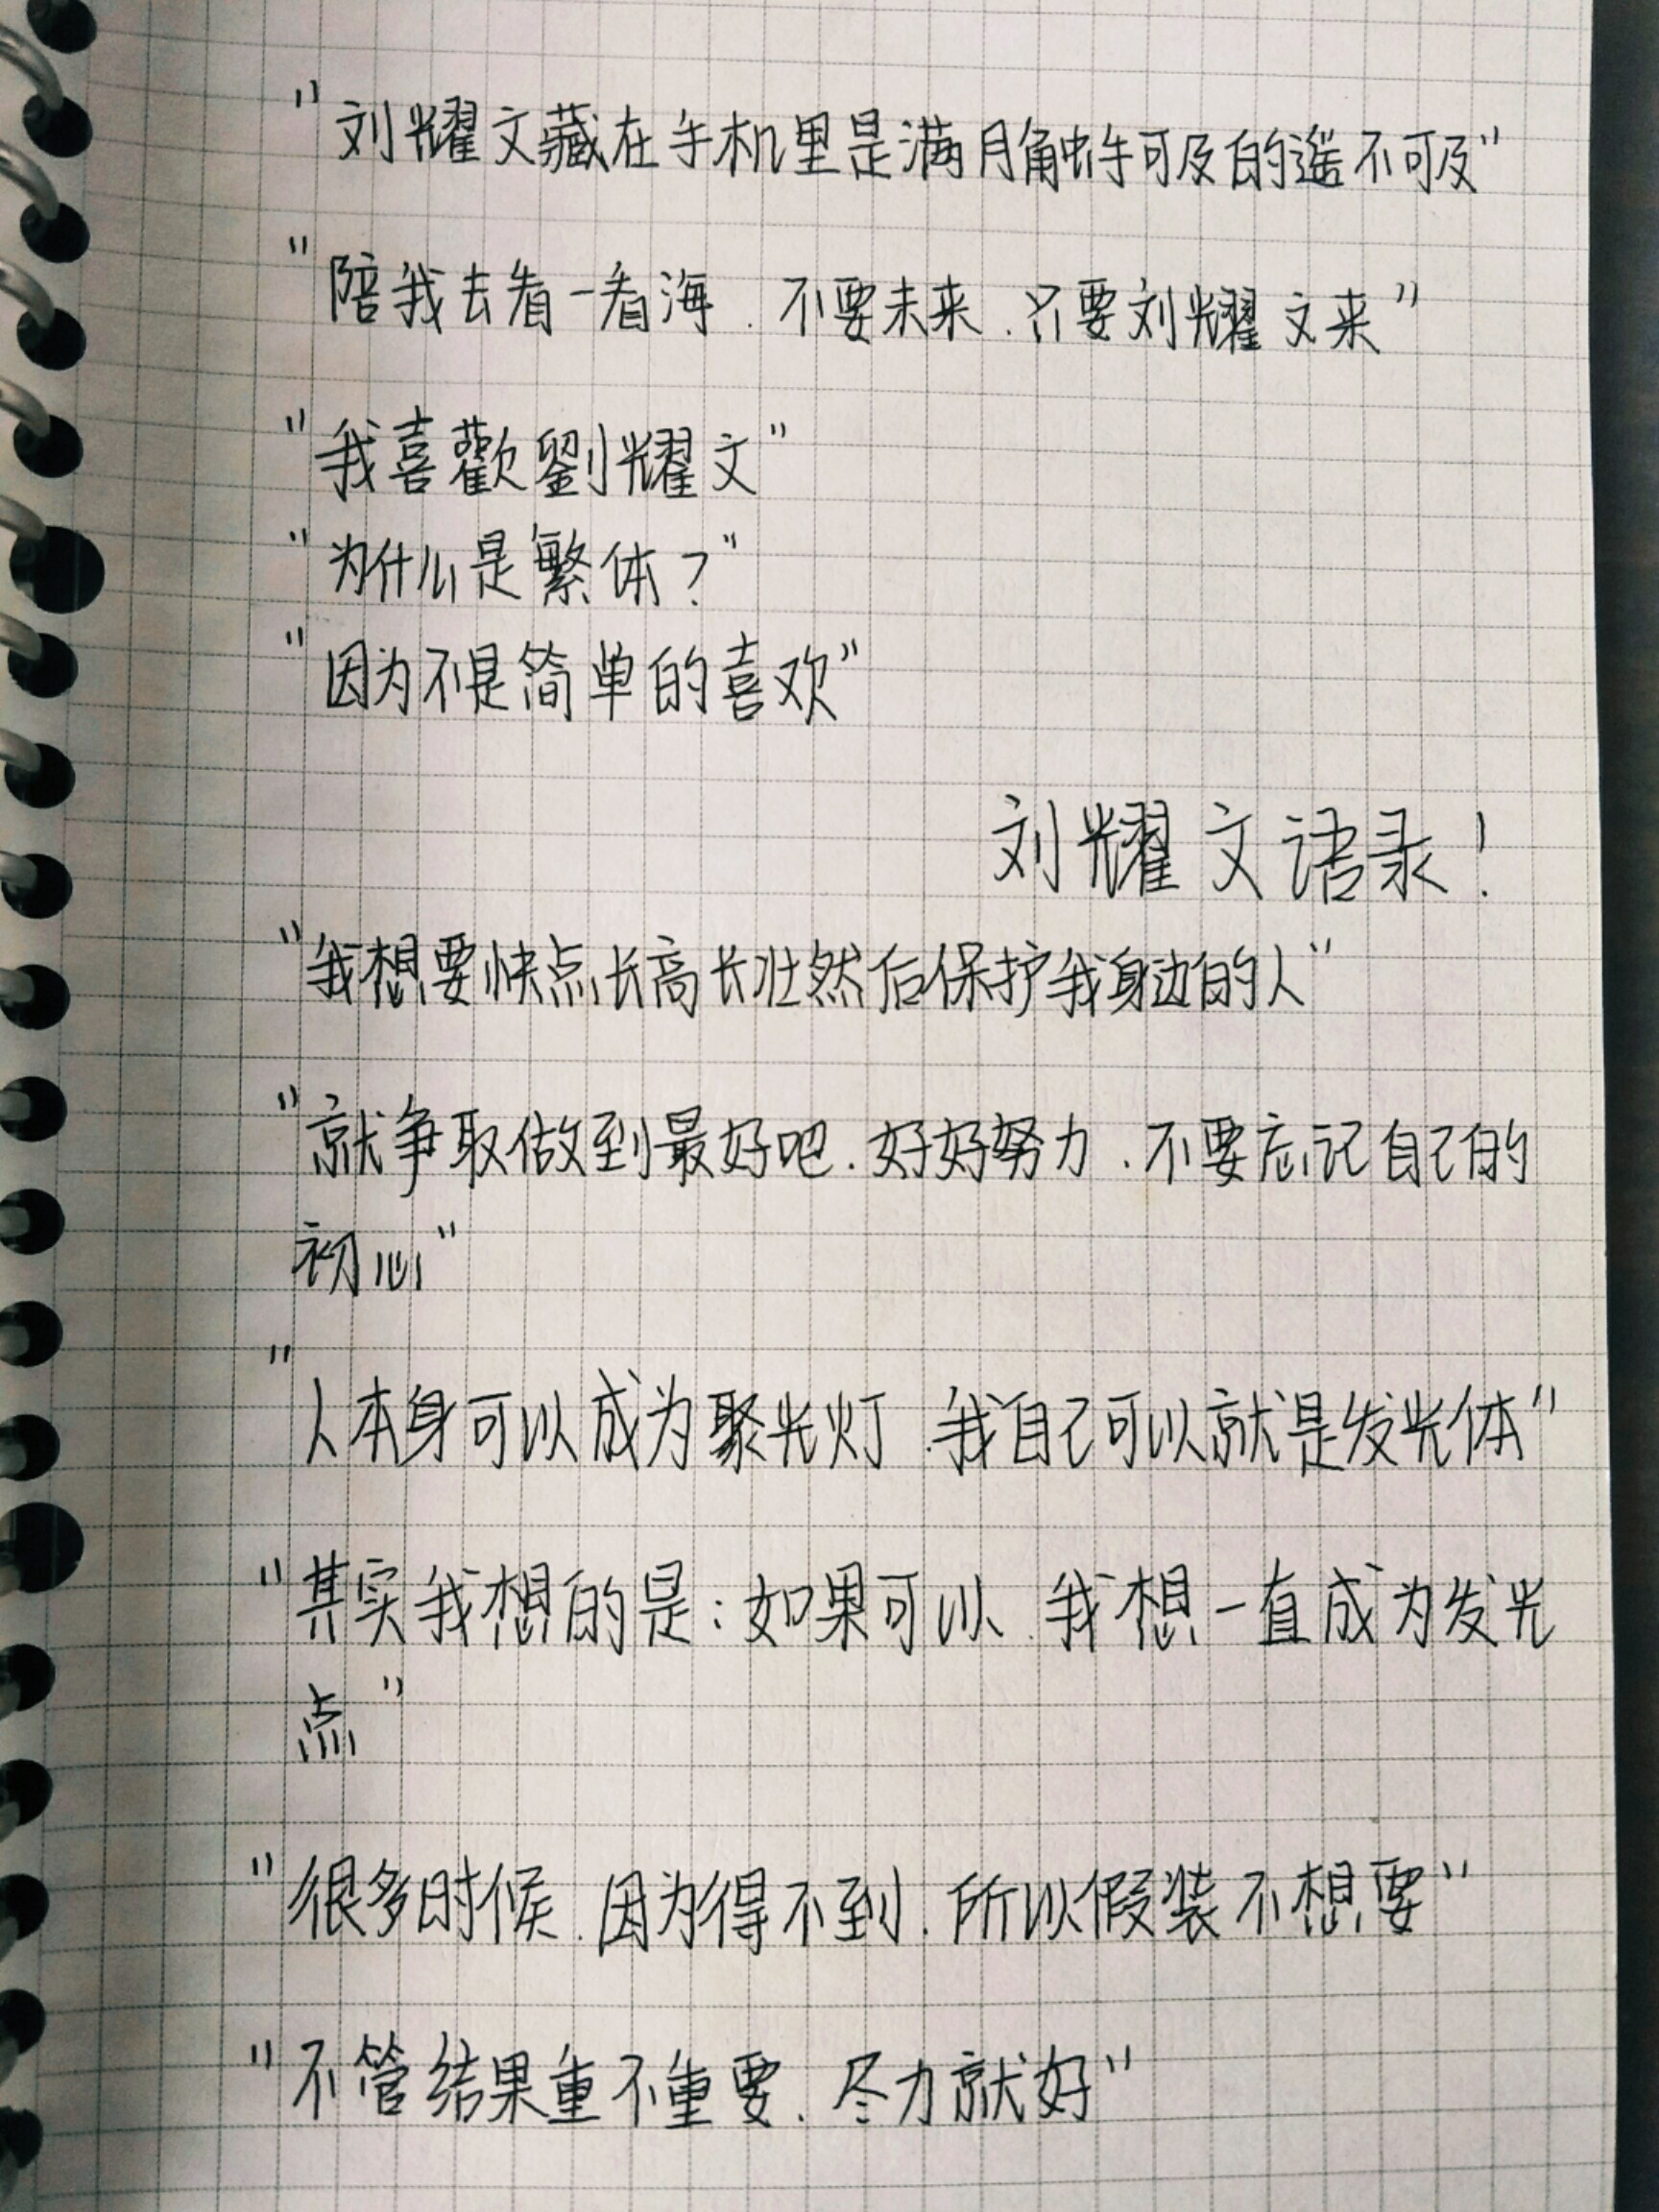 "刘耀文藏在手机里是满月触手可及的遥不可及"
"陪我去看一看海.不要未来.只要刘耀文来"
"我喜歡劉耀文"
"为什么是繁体?"
"因为不是简单的喜欢"
刘耀文语录!
"我想要快点长高长壮然后保护我身边的人"
"就争取做到最好吧.好好努力.不要忘记自己的
初心"
"人本身可以成为聚光灯.我自己可以就是发光体"
"其实我想的是:如果可以.我想一直成为发光
点"
"很多时候.因为得不到.所以假装不想要"
"不管结果重不重要.尽力就好"